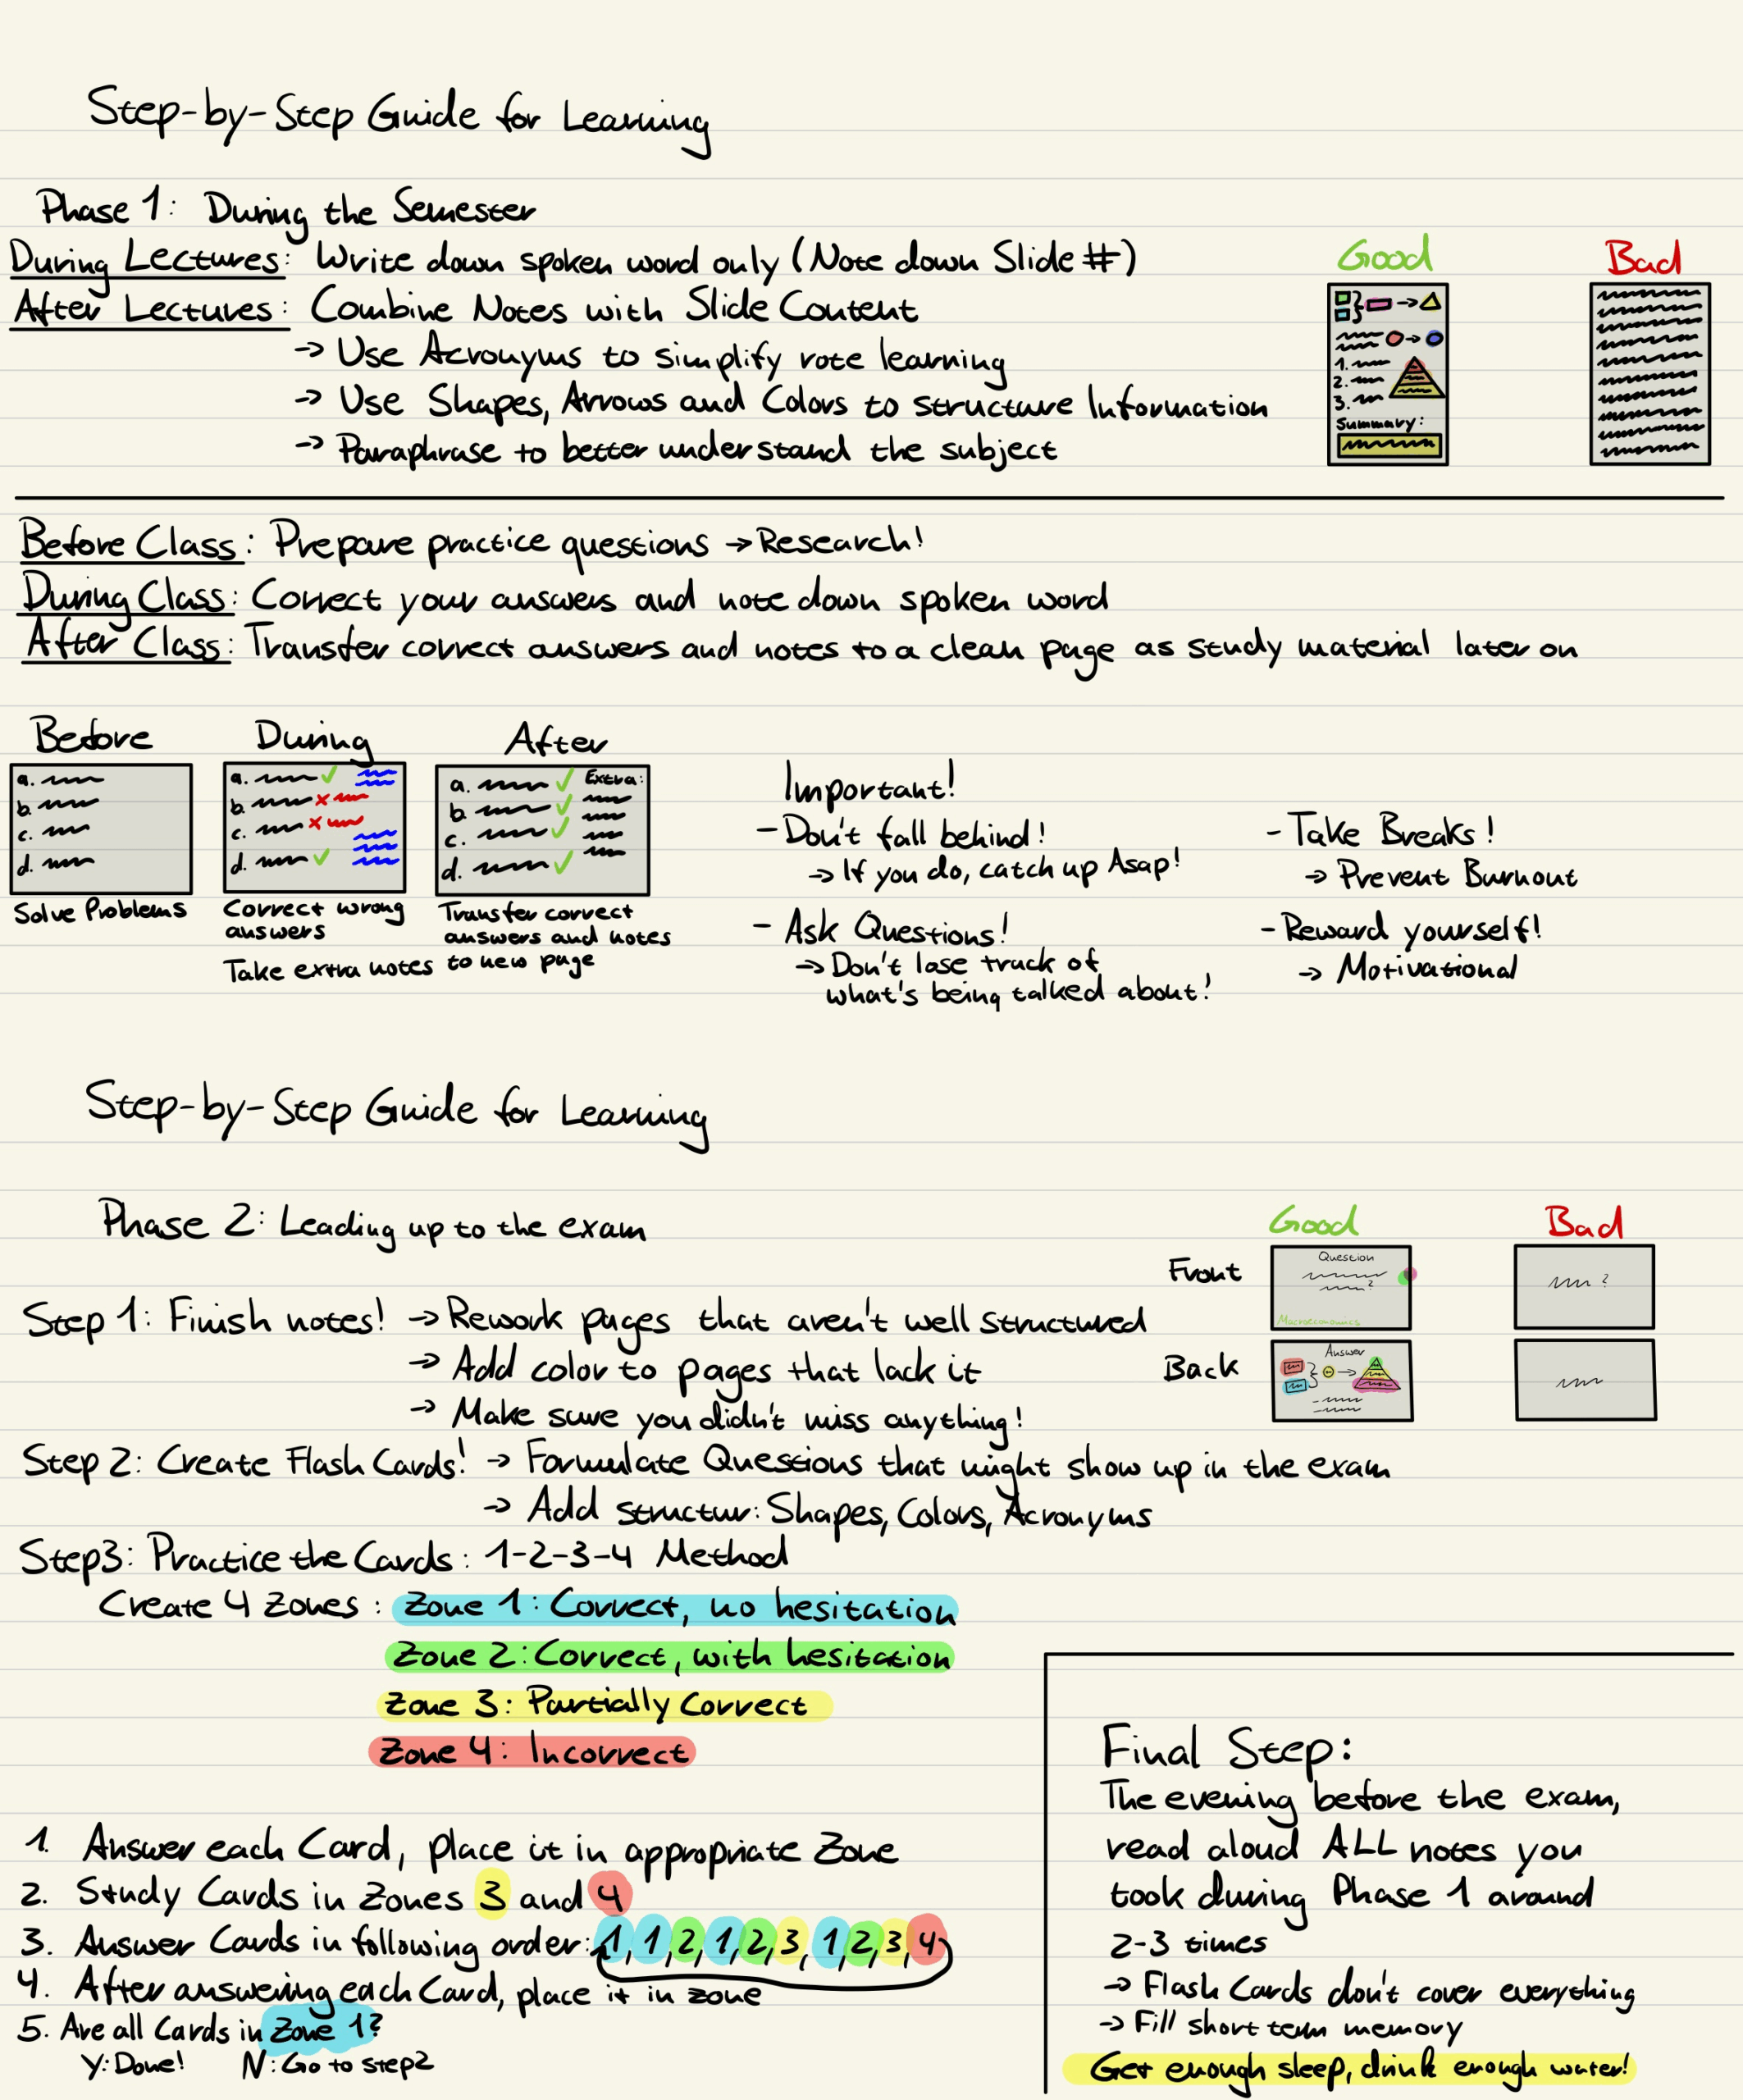 Step-by-Step Guide for Learning
Phase 1: During the Semester
During Lectures: Write down spoken word only (Note down Slide #)
After Lectures: Combine Notes with Slide Content
→ Use Acronyms to simplify rote learning
→ Use Shapes, Arrows and Colors to structure Information
→ Paraphrase to better understand the subject
Good
1.
2.
3.
Summary:
Bad
Before Class: Prepare practice questions → Research!
During Class: Correct your answers and note down spoken word
After Class: Transfer correct answers and notes to a clean page as study material later on
Before
a.
b.
c.
d.
Solve Problems
During
a. ✓
b. x
c. x
d. ✓
Correct wrong
answers
Take extra notes
After
a. ✓ Extra:
b. ✓
c. ✓
d. ✓
Transfer correct
answers and notes
to new page
Important!
- Don't fall behind!
→ If you do, catch up Asap!
- Ask Questions!
→ Don't lose track of
what's being talked about!
- Take Breaks!
→ Prevent Burnout
- Reward yourself!
→ Motivational
Step-by-Step Guide for Learning
Phase 2: Leading up to the exam
Good
Bad
Front
Question
?
Macroeconomics
?
Back
Answer
Step 1: Finish notes! → Rework pages that aren't well structured
→ Add color to pages that lack it
→ Make sure you didn't miss anything!
Step 2: Create Flash Cards! → Formulate Questions that might show up in the exam
→ Add structur: Shapes, Colors, Acronyms
Step3: Practice the Cards: 1-2-3-4 Method
Create 4 Zones: Zone 1: Correct, no hesitation
Zone 2: Correct, with hesitation
Zone 3: Partially Correct
Zone 4: Incorrect
1. Answer each Card, place it in appropriate Zone
2. Study Cards in Zones 3 and 4
3. Answer Cards in following order: 1, 1, 2, 1, 2, 3, 1, 2, 3, 4
4. After answering each Card, place it in zone
5. Are all Cards in Zone 1?
Y: Done! N: Go to step2
Final Step:
The evening before the exam,
read aloud ALL notes you
took during Phase 1 around
2-3 times
→ Flash Cards don't cover everything
→ Fill short term memory
Get enough sleep, drink enough water!